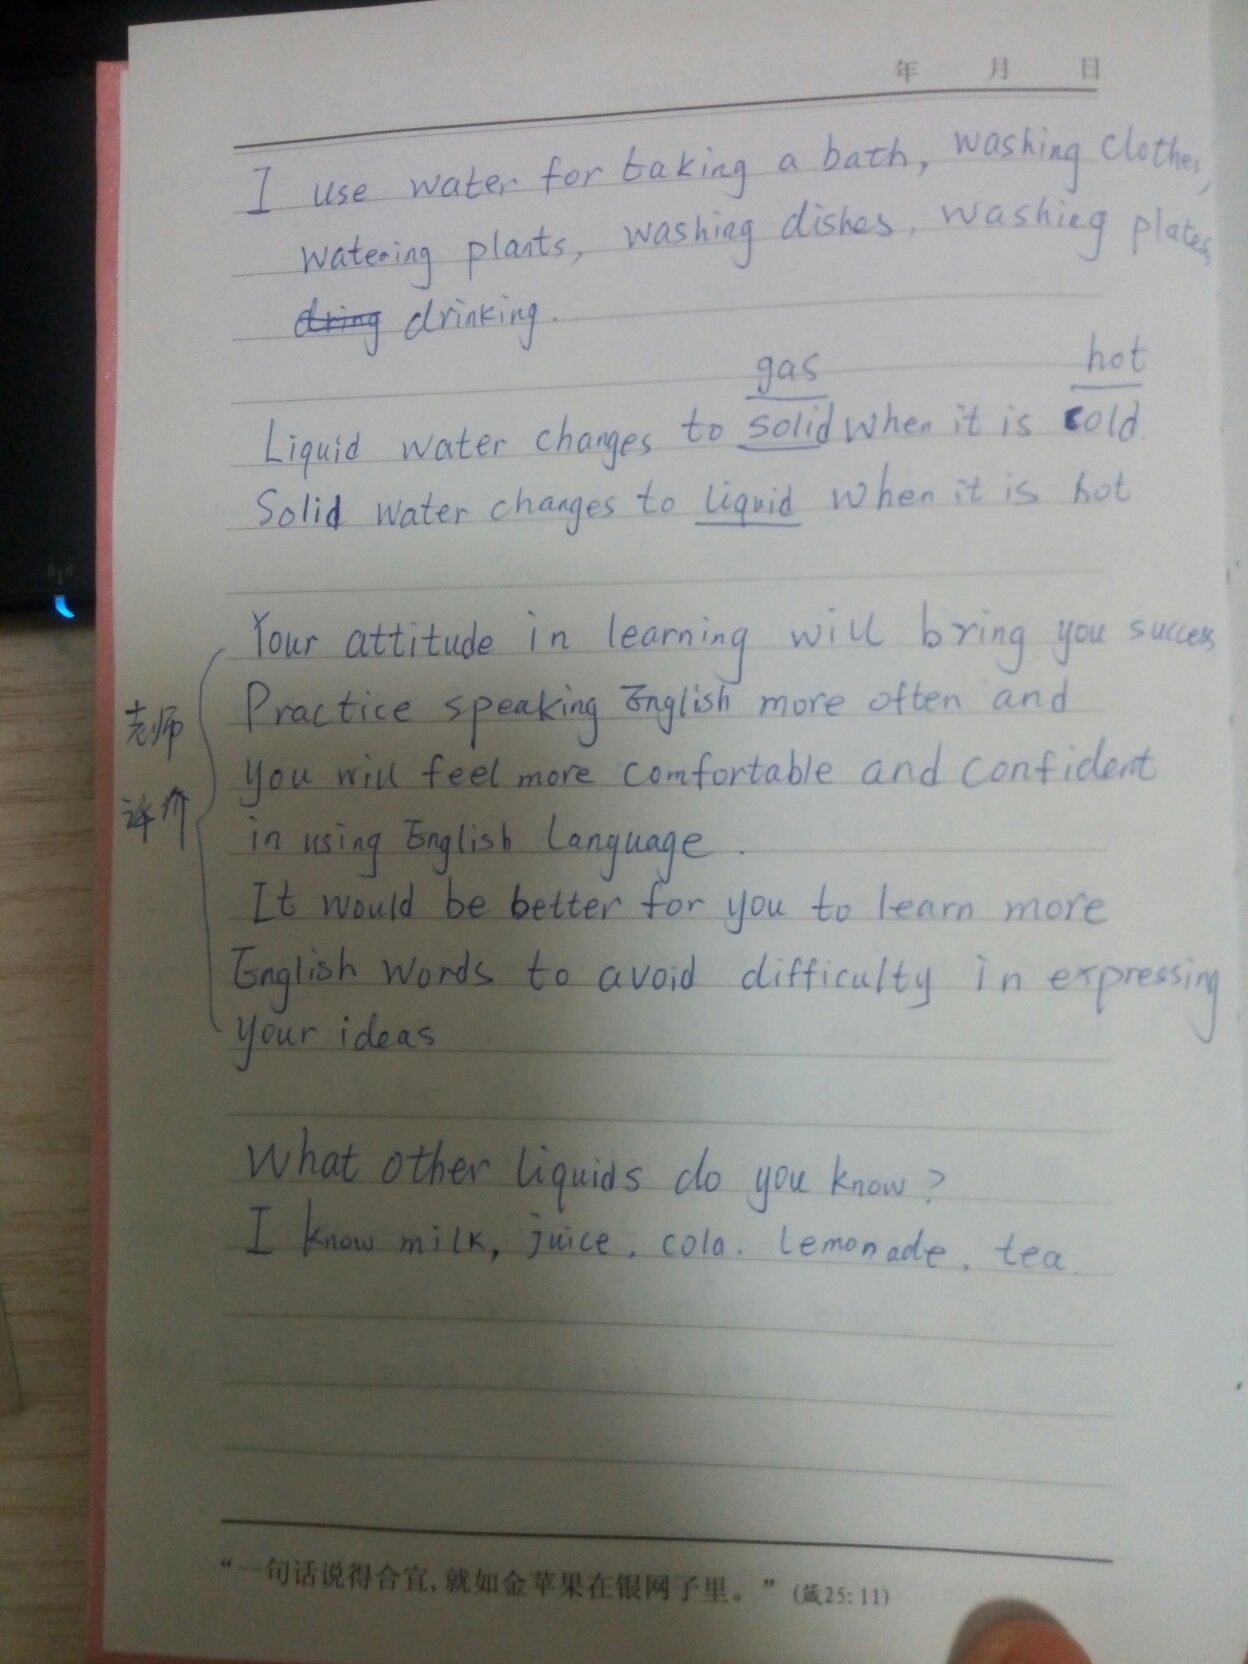 年 月 日
I use water for taking a bath, washing clothes,
watering plants, washing dishes, washing plates,
dring drinking.
gas hot
Liquid water changes to solid when it is cold.
Solid water changes to liquid when it is hot
Your attitude in learning will bring you success.
Practice speaking English more often and
老师
you will feel more comfortable and confident
评价
in using English language.
It would be better for you to learn more
English words to avoid difficulty in expressing
your ideas
What other liquids do you know?
I know milk, juice, cola. lemonade, tea.
“一句话说得合宜,就如金苹果在银网子里。” (箴25:11)